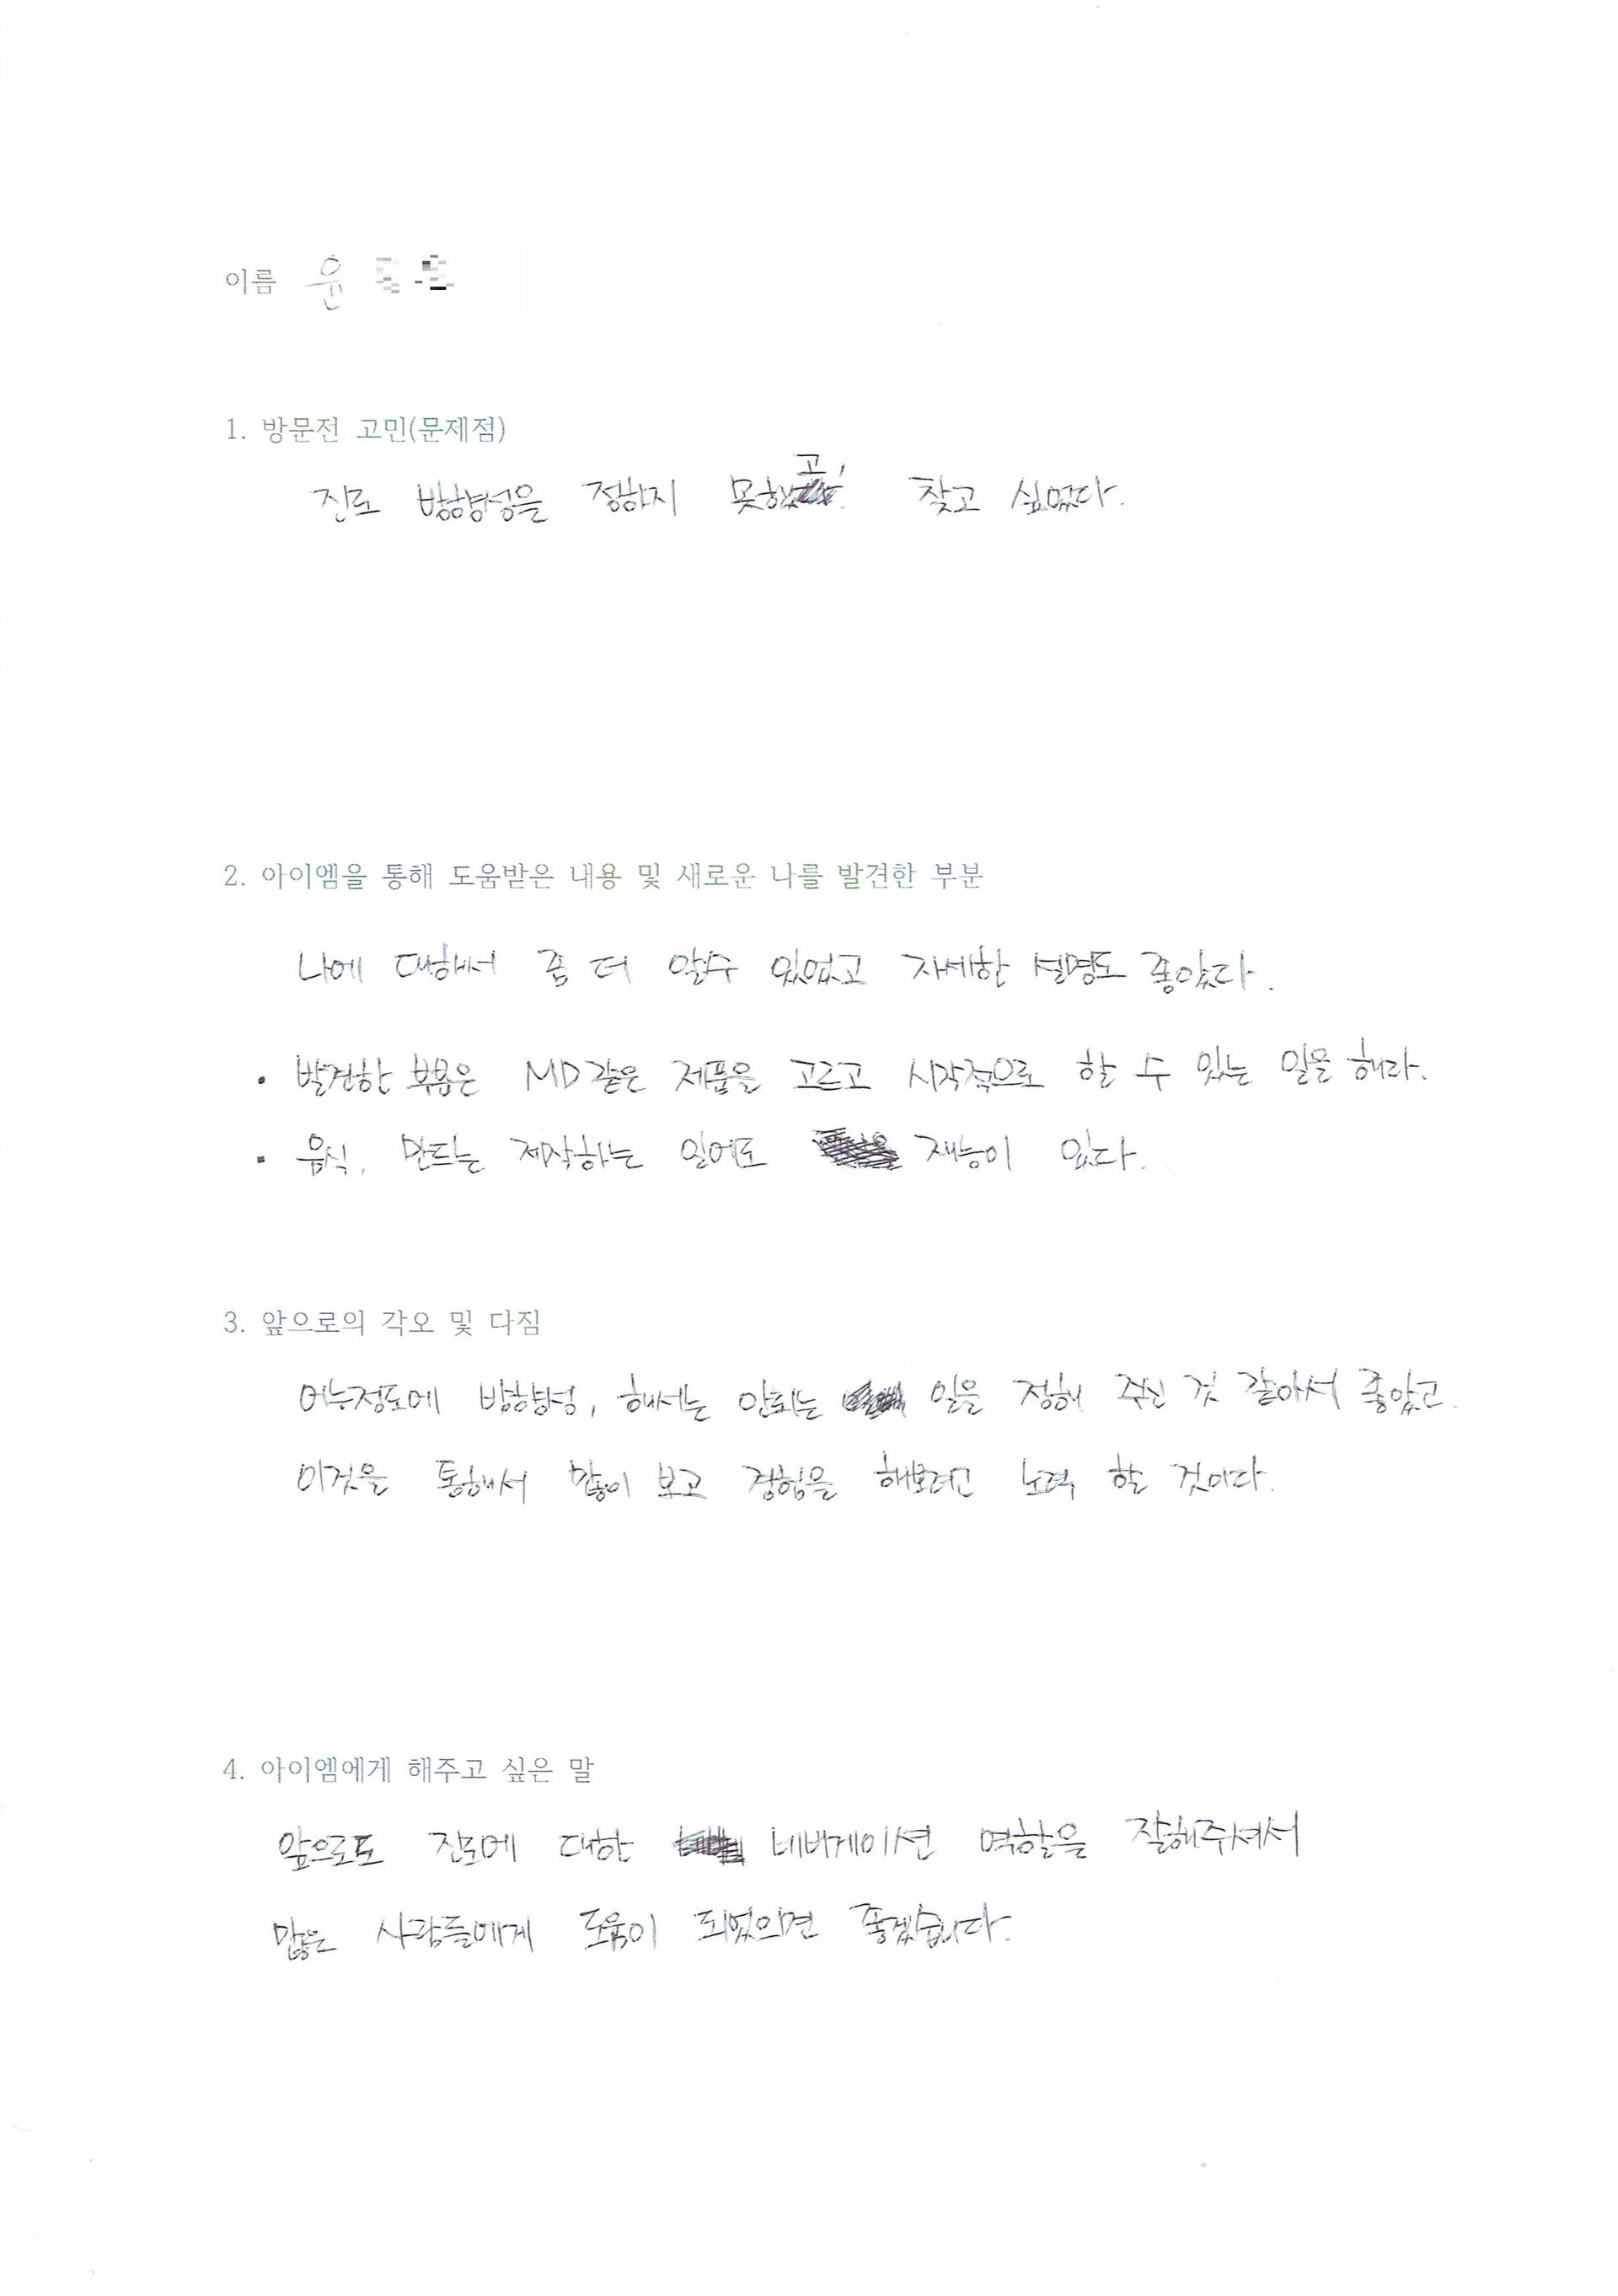 이름 윤
1. 방문전 고민(문제점)
진로 방향성을 정하지 못했고, 찾고 싶었다.
2. 아이엠을 통해 도움받은 내용 및 새로운 나를 발견한 부분
나에 대해서 좀 더 알수 있었고 자세한 설명도 좋았다.
• 발견한 부분은 MD같은 제품을 고르고 시작적으로 할 수 있는 일을 해라.
• 음식, 만드는 제작하는 일에도 재능이 있다.
3. 앞으로의 각오 및 다짐
어느정도에 방향성, 해서는 안되는 일을 정해 주신 것 같아서 좋았고
이것을 통해서 많이 보고 경험을 해보려고 노력 할 것이다.
4. 아이엠에게 해주고 싶은 말
앞으로도 진로에 대한 네비게이션 역할을 잘해주셔서
많은 사람들에게 도움이 되었으면 좋겠습니다.